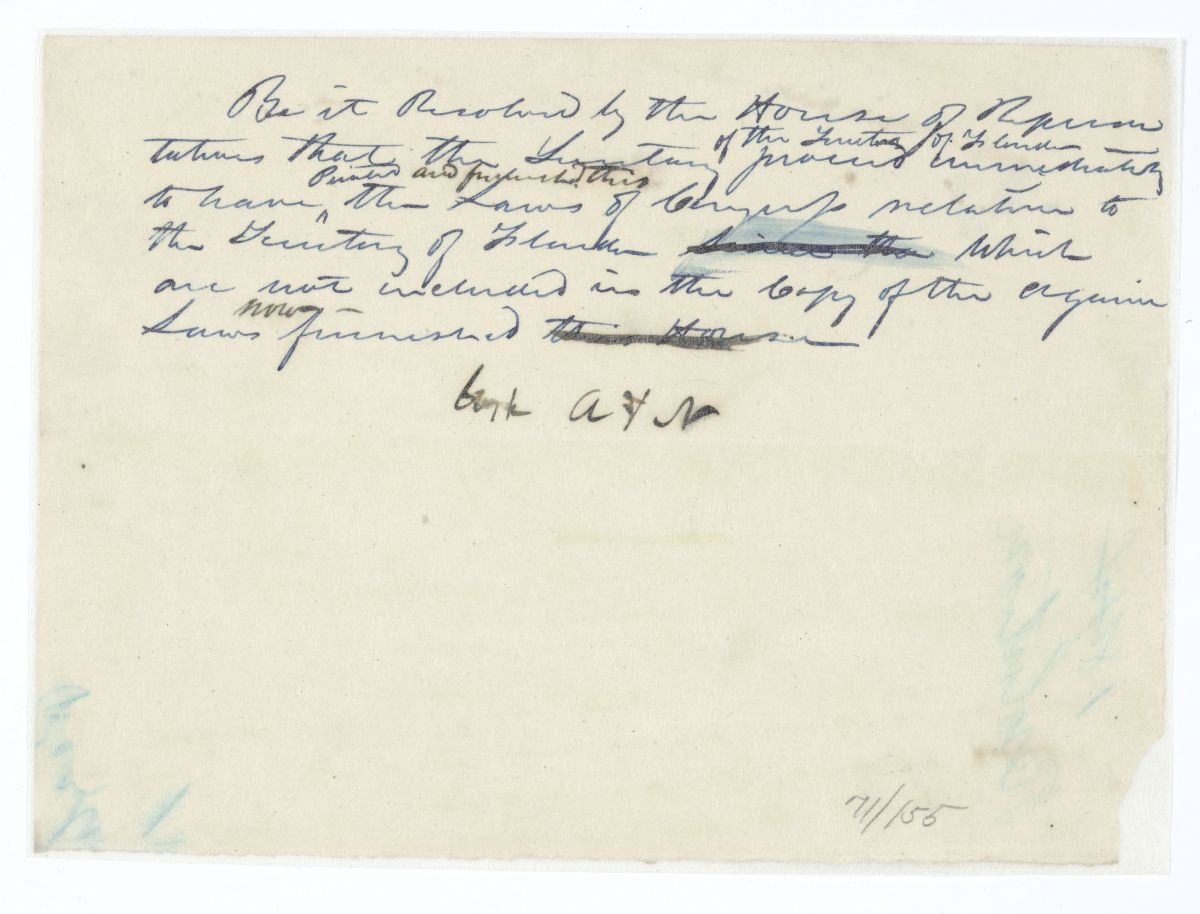 Be it Resolved by the House of Represen
of the Territory of Florida
tatives that the Secretary proceed immediately
Printed and furnished this
to have the Laws of Congress relative to
the Territory of Florida since the Which
are not included in the Copy of the
now
Laws furnished this House
71/155